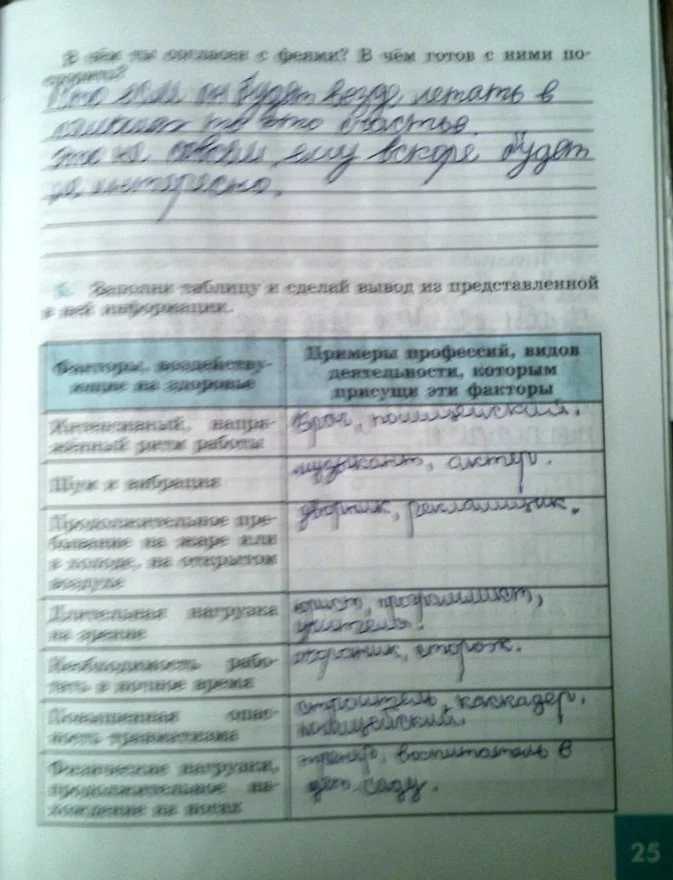 В чём ты согласен с феями? В чём готов с ними по-
спорить?
Что если он будет везде летать в
то это счастье.
это не совсем, ему вскоре будет
не интересно.
Заполни таблицу и сделай вывод из представленной
в ней информации.
Факторы, воздейству-
ющие на здоровье
Примеры профессий, видов
деятельности, которым
присущи эти факторы
Интенсивный, напря-
жённый ритм работы
Врач, полицейский.
Шум и вибрация
музыкант, актер.
Продолжительное пре-
бывание на жаре или
в холоде, на открытом
воздухе
дворник, рекламщик.
Длительная нагрузка
на зрение
юрист, программист,
учитель.
Необходимость рабо-
тать в ночное время
охраник, сторож.
Повышенная опас-
ность травматизма
строитель, каскадер,
полицейский.
Физические нагрузки,
продолжительное на-
хождение на ногах
тренер, воспитатель в
дет. саду.
25